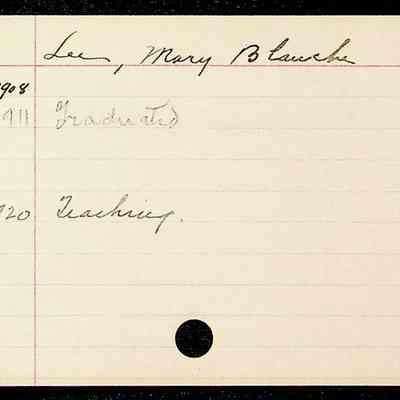 Lee, Mary Blanche
1908
911 Graduated
920 Teaching.